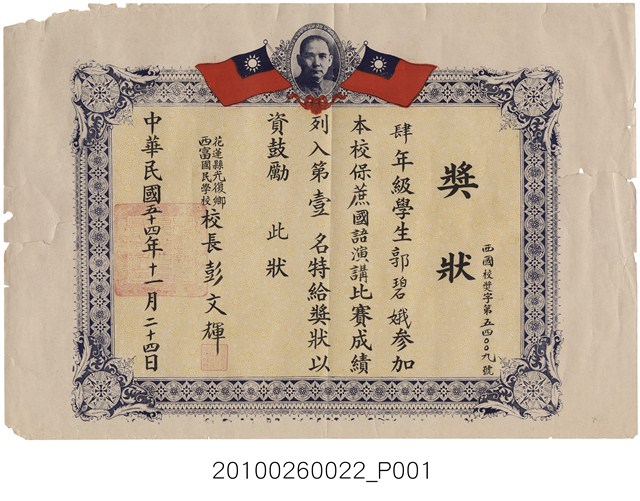 獎狀
西國校獎字第五四〇〇九號
肆年級學生郭碧娥參加
本校保蔗國語演講比賽成績
列入第壹名特給獎狀以
資鼓勵 此狀
花蓮縣光復鄉
西富國民學校
校長彭文輝
中華民國五十四年十一月二十四日
20100260022_P001